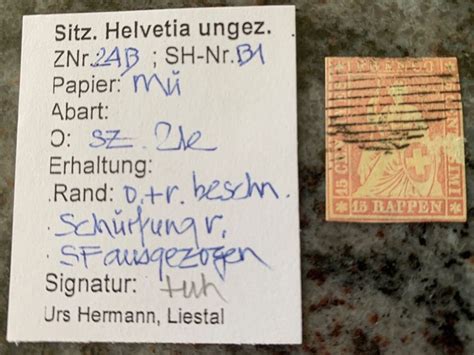 Sitz. Helvetia ungez.
ZNr. 24B ; SH-Nr. B1
Papier: Mü
Abart:
O: sz. 2k
Erhaltung:
Rand: o.+r. beschn.
Schürfung r,
SF ausgezogen
Signatur: +uh
Urs Hermann, Liestal
15 RAPPEN 15
15 CENT